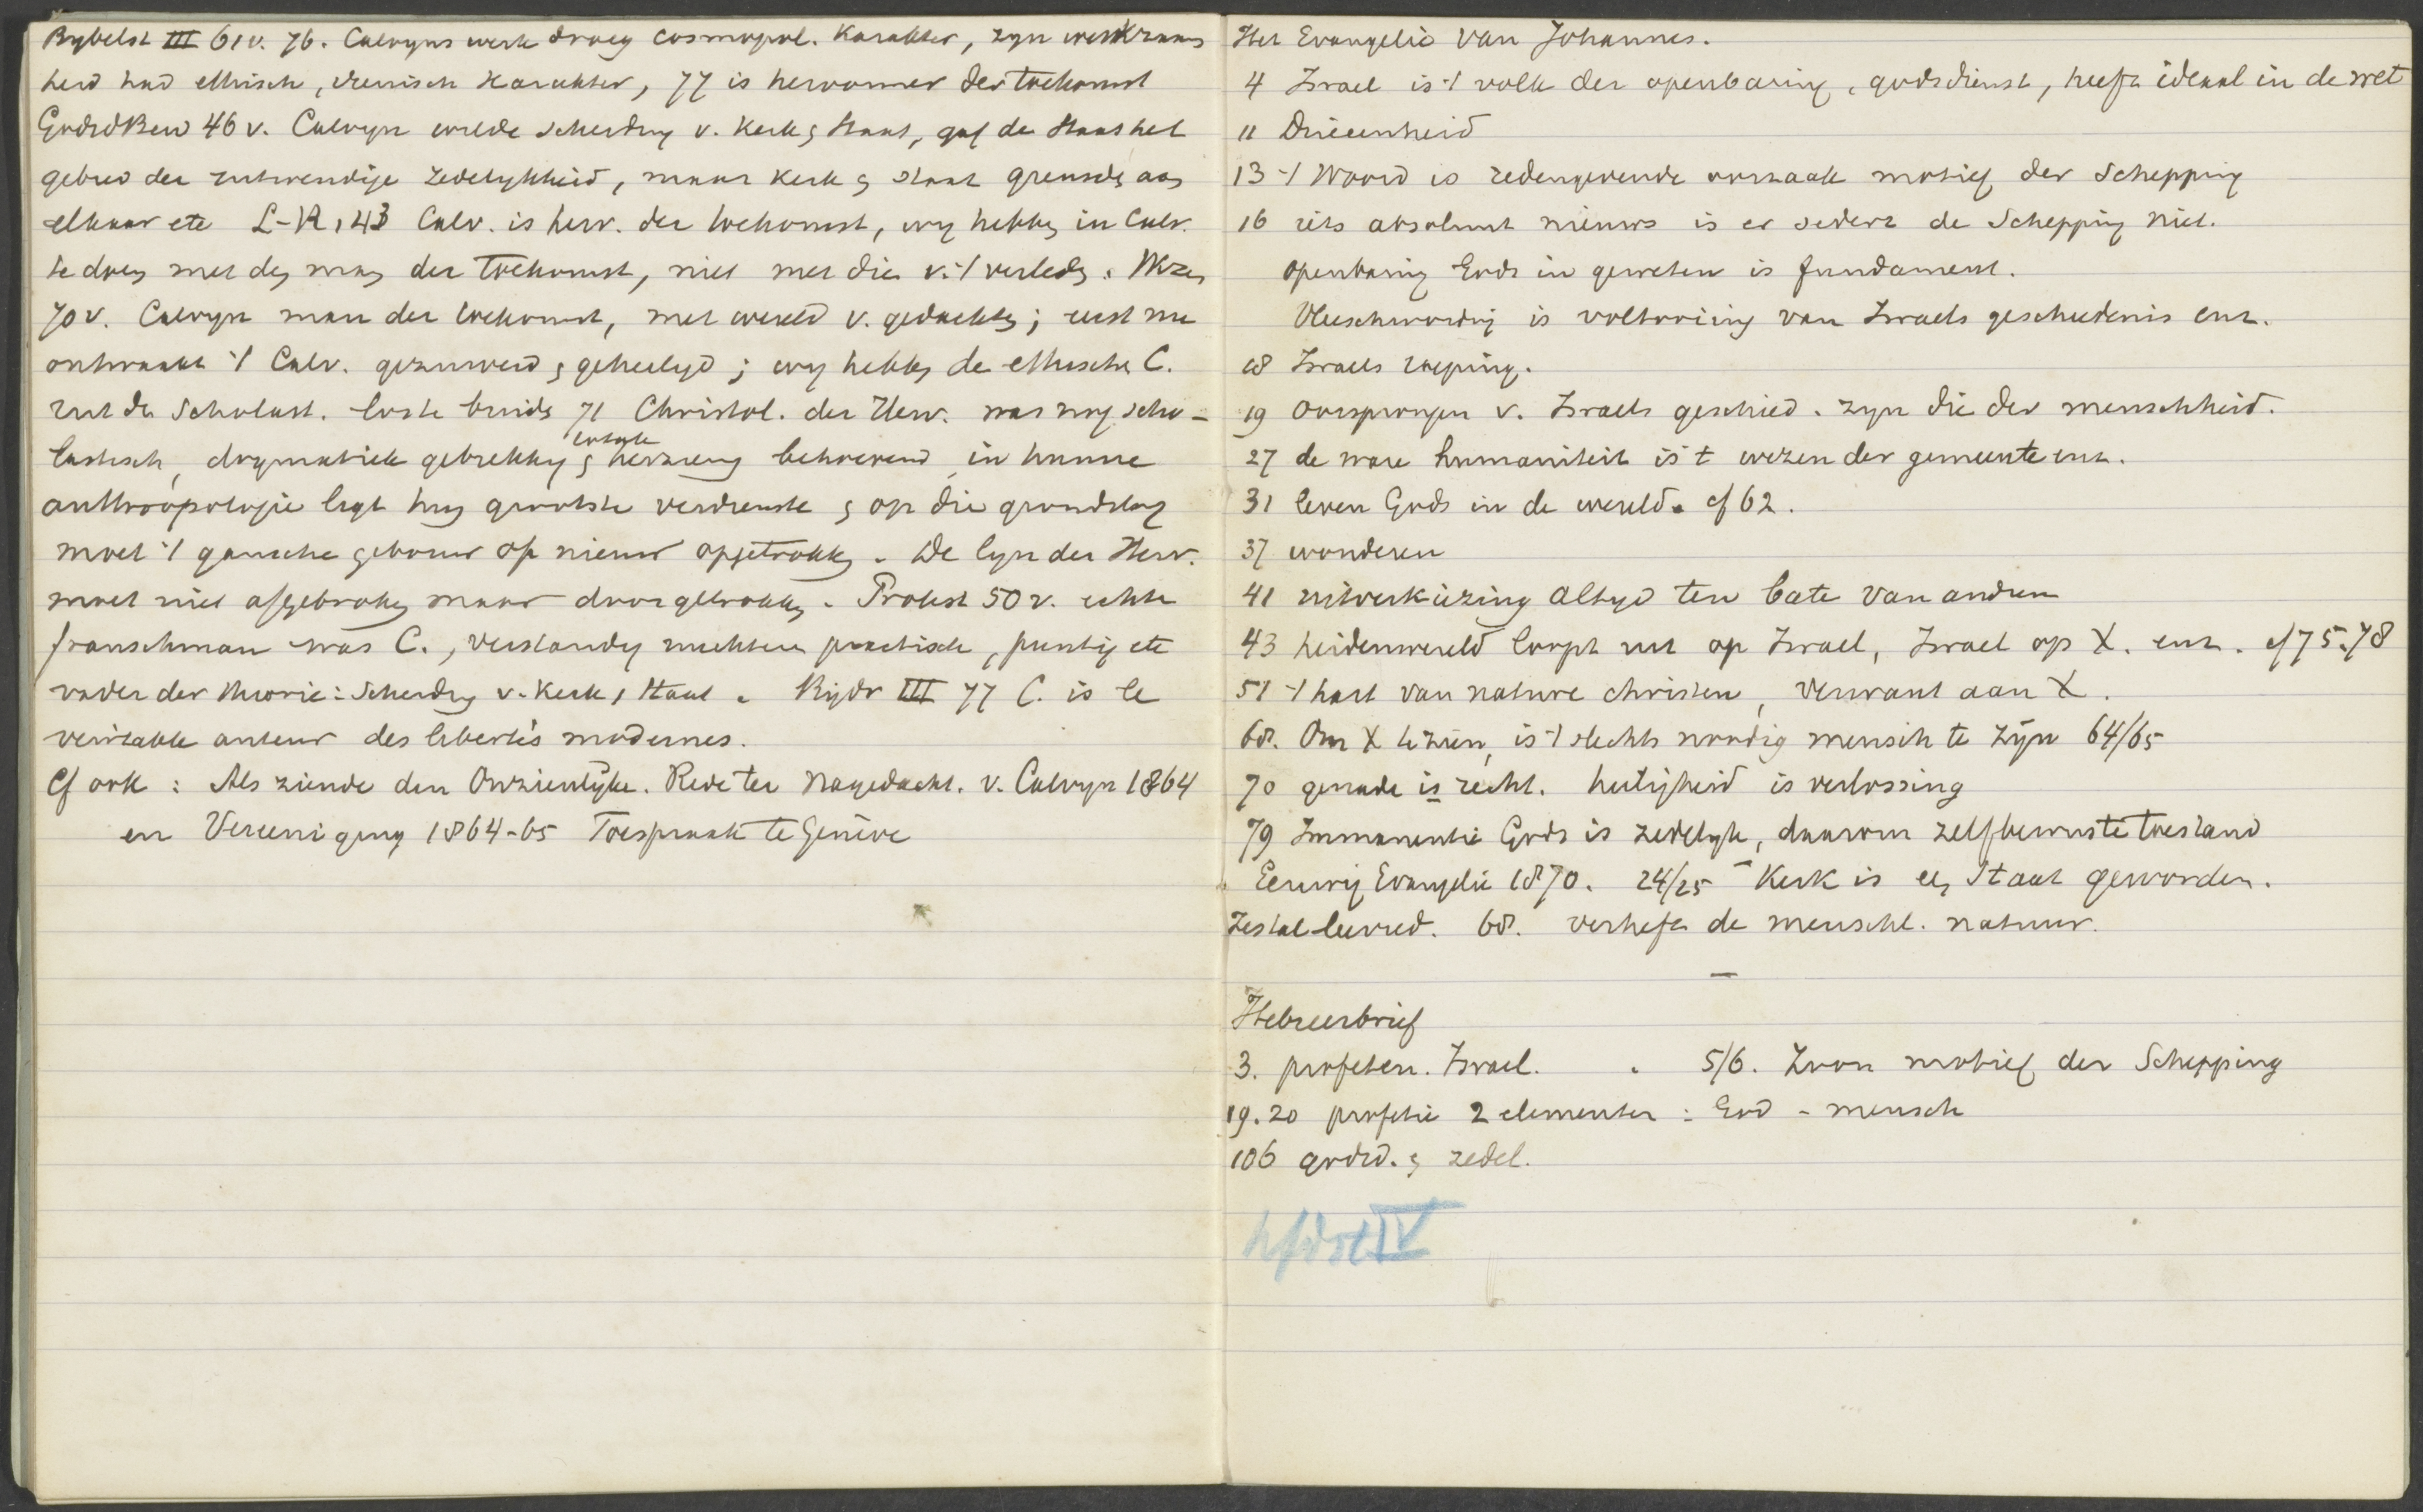 Bybelst III 61v. 76. Calvyns werk droeg cosmopol. Karakter, zyn werkzaam
heid had ethisch, irenisch Karakter, 77 is hervormer der toekomst
GodsdBew 46 v. Calvyn wilde scheiding v. Kerk & Staat, gaf de Staat het
gebied der uitwendige zedelykheid, maar kerk & staat grensde aan
elkaar etc L-R, 43 Calv. is herv. der toekomst, wy hebben in Calv.
te doen met den man der toekomst, niet met die v. 't verleden.
70 v. Calvyn man der toekomst, met wereld v. gedachten; eerst nu
ontwaakt 't Calv. gezuiverd & geheiligd; wy hebben de ethische C.
uit de Scholast. 71 Christol. der Herv. was nog scho-
lastisch, dogmatiek gebrekkig & herziening behoevend, in hunne
anthropologie ligt hun grootste verdienste & op die grondslag
moet 't gansche gebouw op nieuw opgetrokken. De lyn der Herv.
moet niet afgebroken maar doorgetrokken. Protest 50 v. echte
franschman was C., verstandig nuchter practisch, puntig etc
vader der theorie: Scheiding v. Kerk, Staat. Bijdr III 77 C. is le
veritable auteur des libertés modernes.
Cf ook: Als ziende den Onzienlijke. Rede ter Nagedacht. v. Calvyn 1864
en Vereeniging 1864-65 Toespraak te Genève
Het Evangelie van Johannes.
4 Israel is 't volk der openbaring, godsdienst, heeft ideaal in de wet
11 Drieeenheid
13 't Woord is redengevende oorzaak motief der Schepping
16 iets absoluut nieuws is er sedert de Schepping niet.
openbaring Gods in geweten is fundament.
Vleeschwording is voltooiing van Israels geschiedenis enz.
18 Israels roeping.
19 oorsprongen v. Israels geschied. zyn die der menschheid.
27 de ware humaniteit is 't wezen der gemeente enz.
31 leven Gods in de wereld. cf 62.
37 wonderen
41 uitverkiezing altyd ten bate van anderen
43 heidenwereld loopt uit op Israel, Israel op X. enz. cf 75.78
51 't hart van nature christen, verwant aan X.
68. Om X te zien, is 't slechts noodig mensch te zijn 64/65
70 genade is recht. heiligheid is verlossing
79 Immanentie Gods is zedelyk, daarom zelfbewuste toestand
Eeuwig Evangelie 1870. 24/25 - Kerk is een Staat geworden.
Zestal leerred. 68. verheft de menschl. natuur.
—
Hebreerbrief
3. profeten. Israel. . 5/6. Zoon motief der Schepping
19.20 profetie 2 elementen: God - mensch
106 godsd. & zedel.
hfdst IV